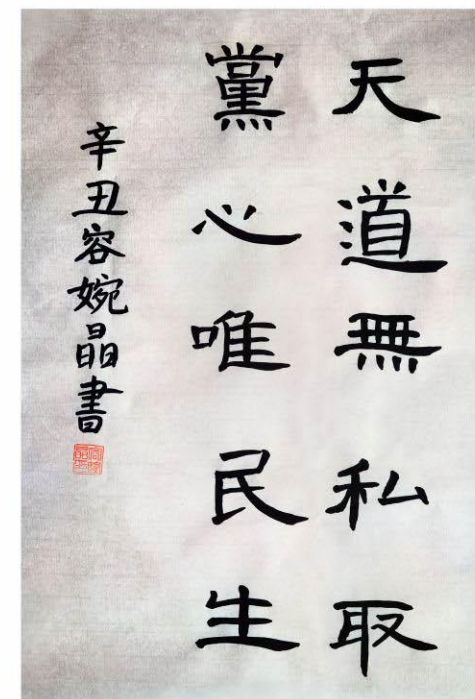 天道無私取
黨心唯民生
辛丑容婉晶書